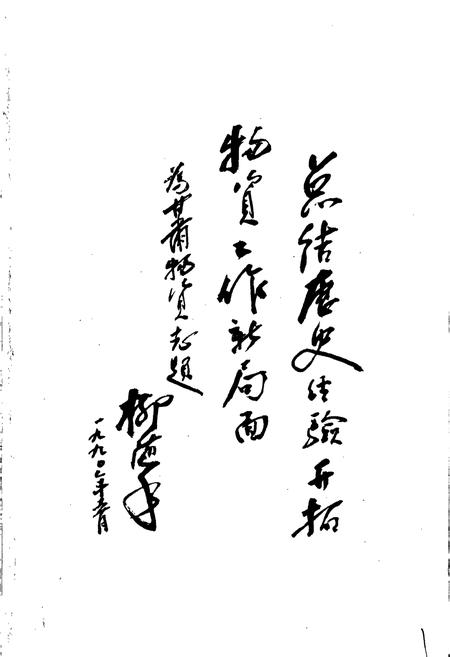 总结历史经验开拓
物资工作新局面
为甘肃物资志题
柳随年
一九九〇年五月